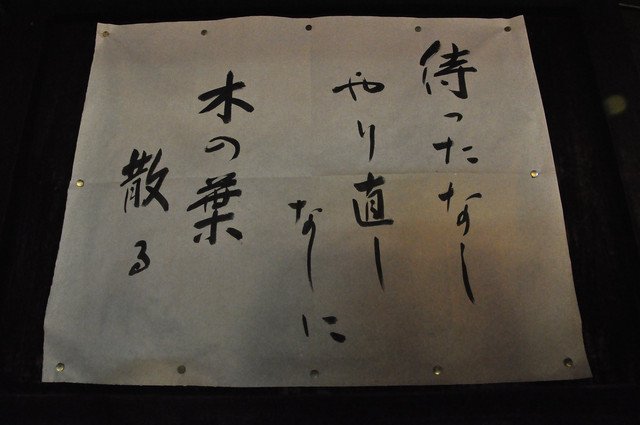 待ったなし
やり直し
なしに
木の葉
散る